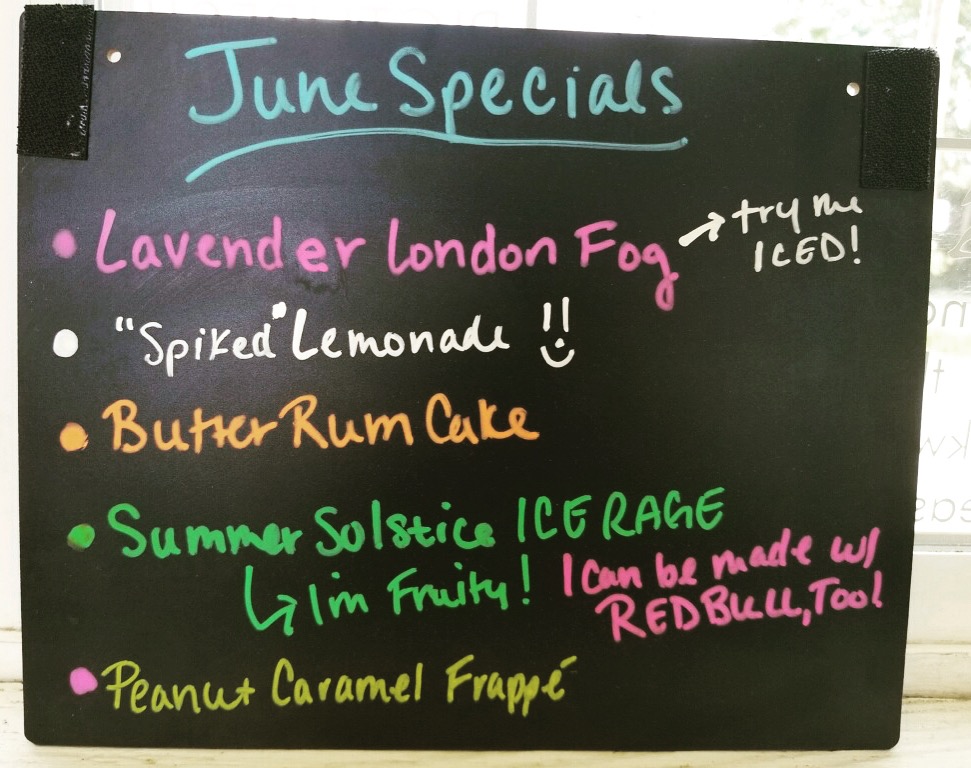 June Specials
• Lavender London Fog → try me
ICED!
• "Spiked" Lemonade !!
• Butter Rum Cake
• Summer Solstice ICE RAGE
↳ I'm Fruity! I can be made w/
RED BULL, Too!
• Peanut Caramel Frappé